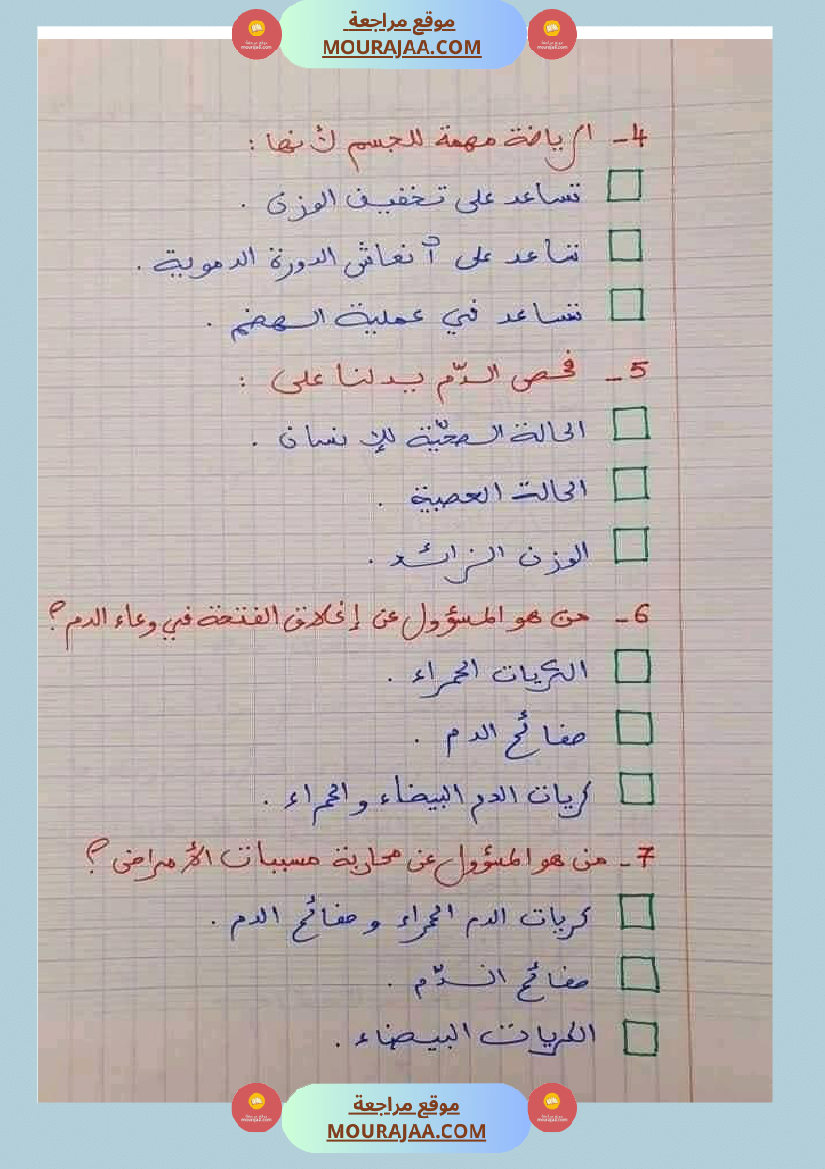 موقع مراجعة
MOURAJAA.COM
4- الرياضة مهمة للجسم لأنها :
تساعد على تخفيف الوزن .
تساعد على أنعاش الدورة الدموية .
تساعد في عملية الهضم .
5- فحص الدّم يدلنا على :
الحالة الصحيّة للإنسان .
الحالة العصبية .
الوزن الزائد .
6- من هو المسؤول عن إغلاق الفتحة في وعاء الدم ؟
الكريات الحمراء .
صفائح الدم .
كريات الدم البيضاء و الحمراء .
7- من هو المسؤول عن محاربة مسببات الأمراض ؟
كريات الدم الحمراء و صفائح الدم .
صفائح الدّم .
الكريات البيضاء .
موقع مراجعة
MOURAJAA.COM